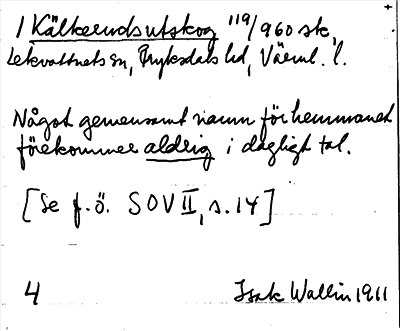 1 Kälkerudsutskog 119/960 sk,
Lekvattnets sn, Fryksdals hd, Värml. l.
Något gemensamt namn för hemmanet
förekommer aldrig i dagligt tal.
[Se f.ö. SOV II, s. 14]
4 Isak Wallin 1911